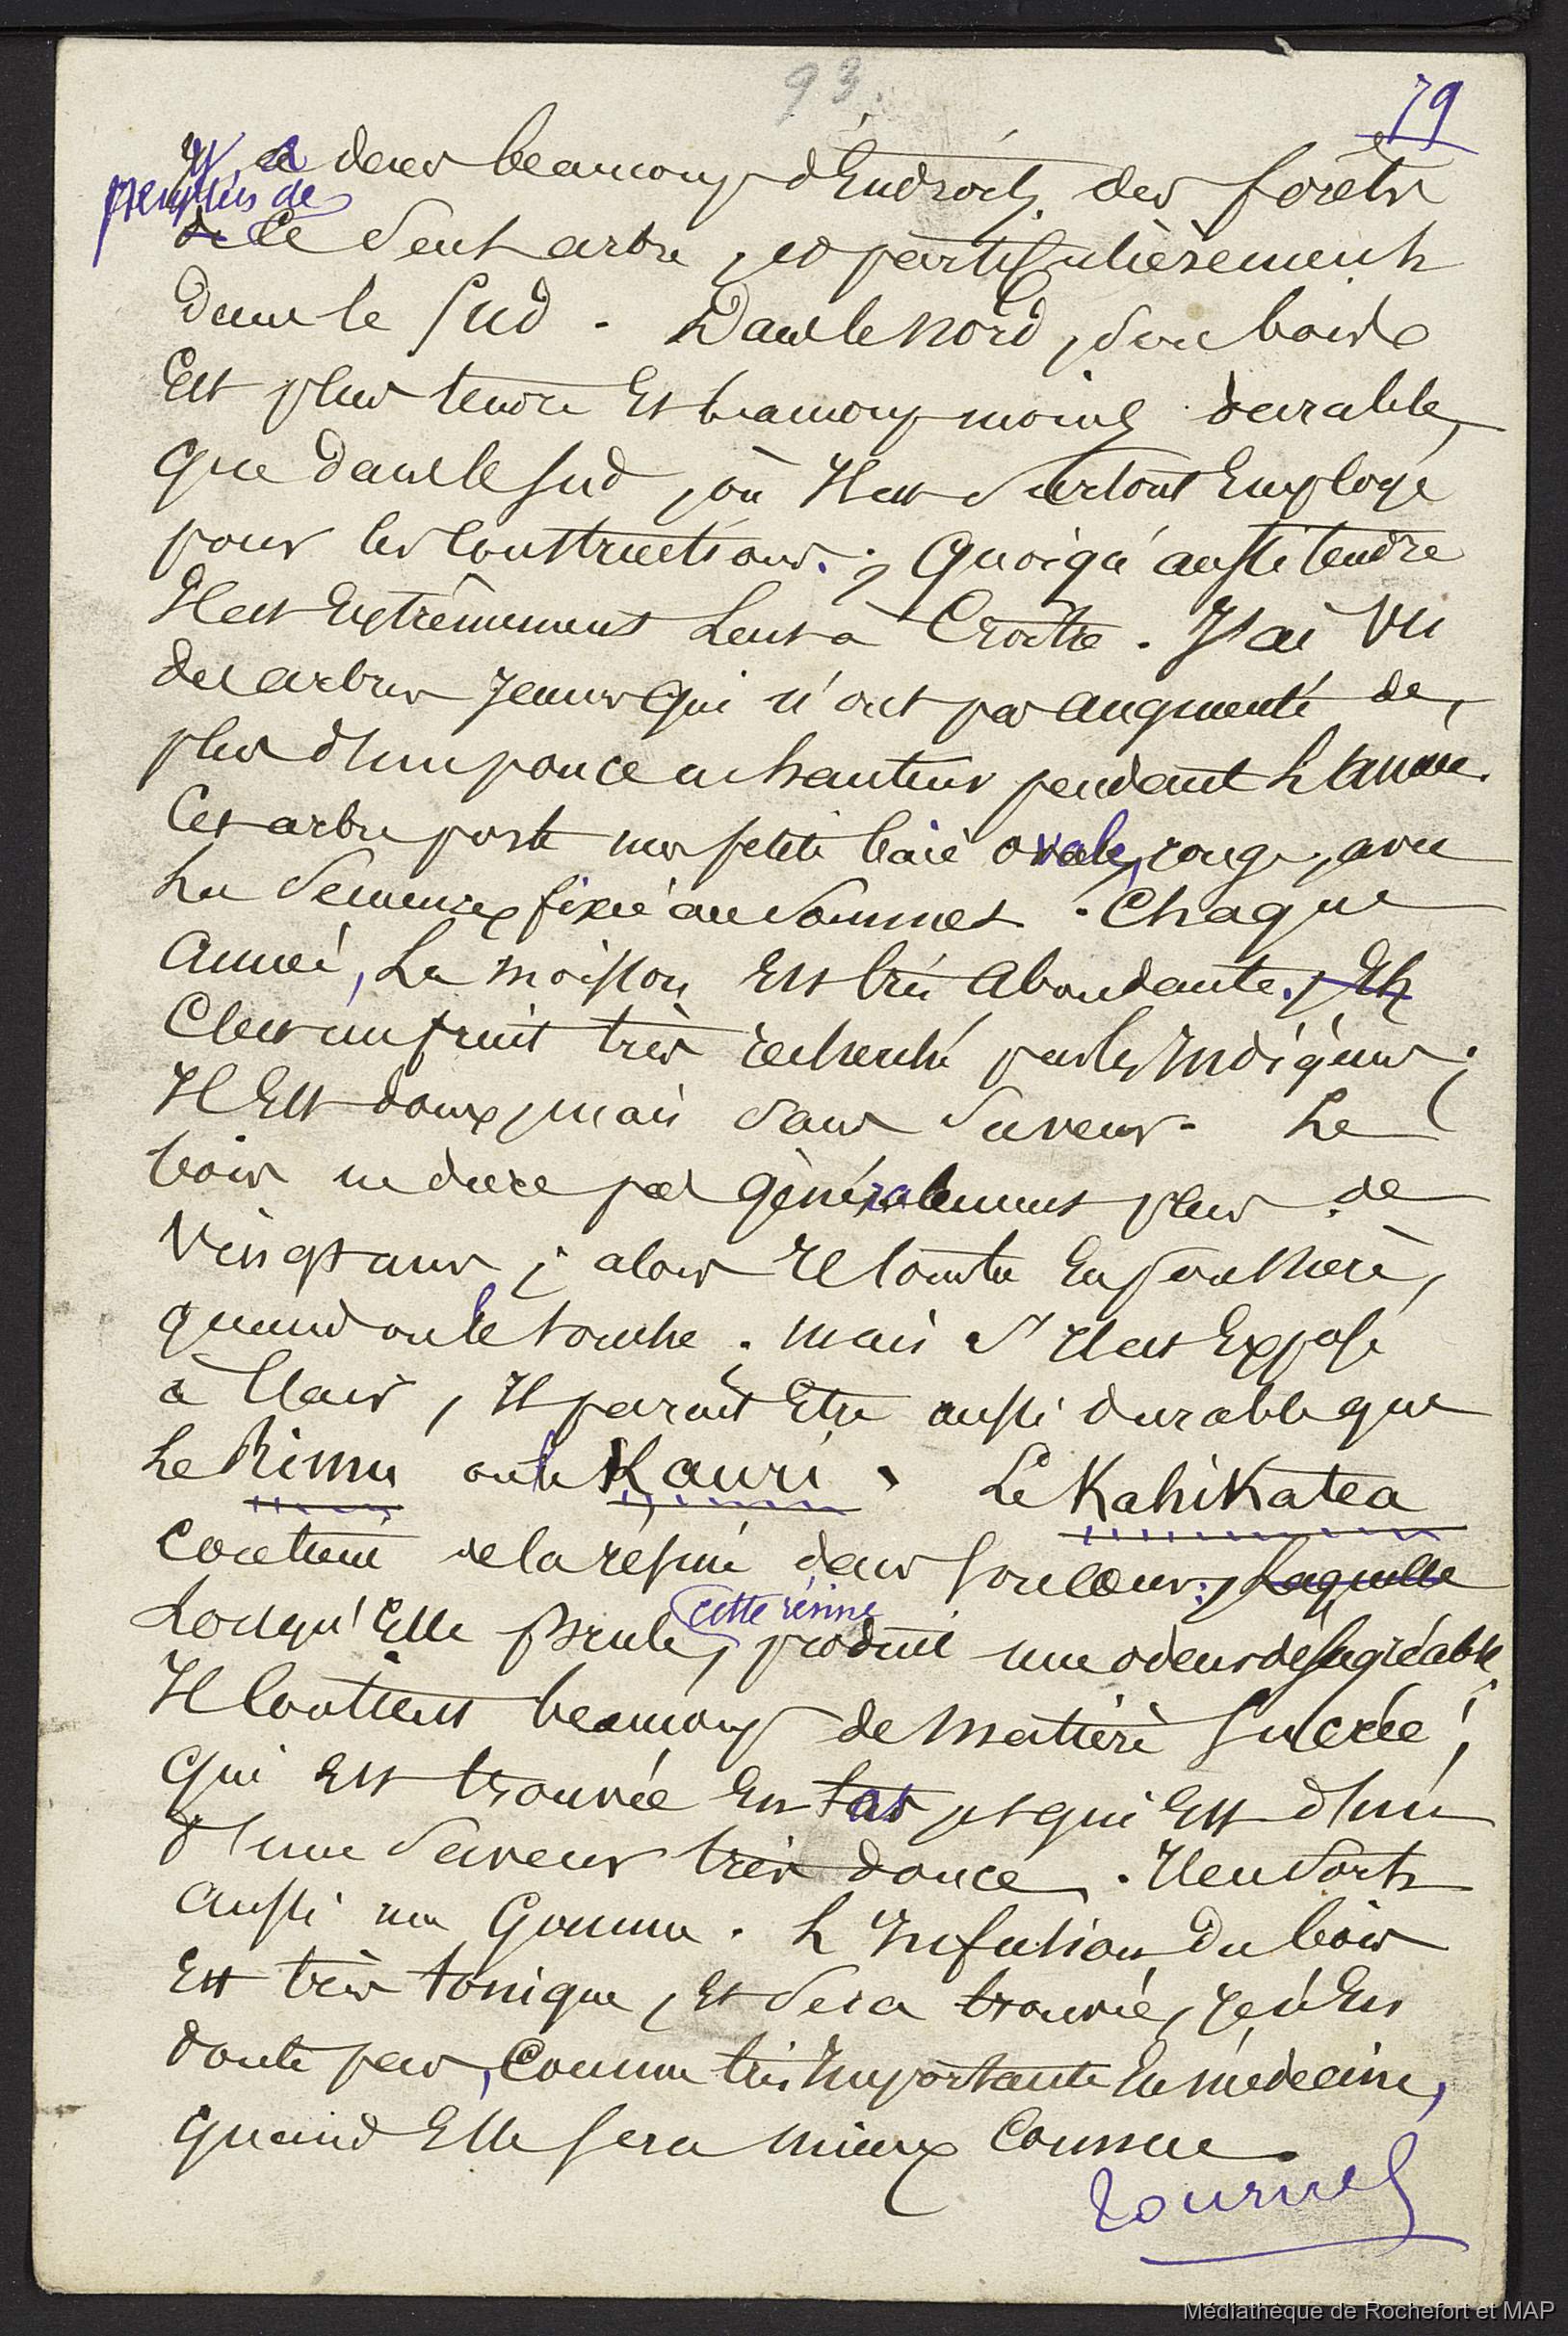 93.
79
Il y a dans beaucoup d'Endroits des forêts
peuplées de
de Ce Seul arbre, et particulièrement
dans le Sud. Dans le nord, Son bois
Est plus tendre Et beaucoup moins durable,
que dans le Sud, où Il est Surtout Employé
pour les Constructions.; Quoiqu'aussi tendre
Il est Extrêmement Lent à Croître. J'ai Vu
des arbres Jeunes Qui n'ont pas augmenté de
plus d'un pouce en hauteur pendant L'année.
Cet arbre porte une petite baie ovale, rouge, avec
La Semence fixée au Sommet. Chaque
Année, La moisson Est très Abondante., Et
C'est un fruit très recherché par les Indigènes;
Il Est doux, mais Sans Saveur. Le
bois ne dure pas Généralement plus de
Vingt ans; alors Il tombe En poussière,
quand on le touche. mais S'Il est Exposé
à l'air, Il parait Etre aussi durable que
Le Rimu ou le Kauri. Le KahiKatea
Contient de la résine dans Son Cœur; Laquelle
Lorsqu'Elle brule, cette résine produit une odeur désagréable.
Il Contient beaucoup de Matière Sucrée,
qui Est trouvée En tas, et qui Est d'une
d'une Saveur très douce. Il en Sort
Aussi une Gomme. L'Infusion du bois
Est très tonique, Et Sera trouvée, je n'En
doute pas, Comme très Importante En médecine,
Quand Elle Sera mieux Connue.
tournez
Médiathèque de Rochefort et MAP